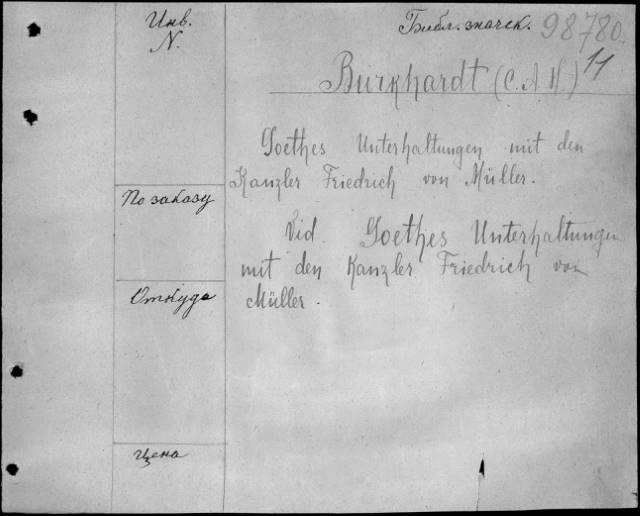 Инв.
N.
Библ. значек. 98780.
11
Burkhardt (C. A. H.)
Goethes Unterhaltungen mit den
Kanzler Friedrich von Müller.
По заказу
Vid. Goethes Unterhaltungen
mit den Kanzler Friedrich von
Müller.
Откуда
Цена